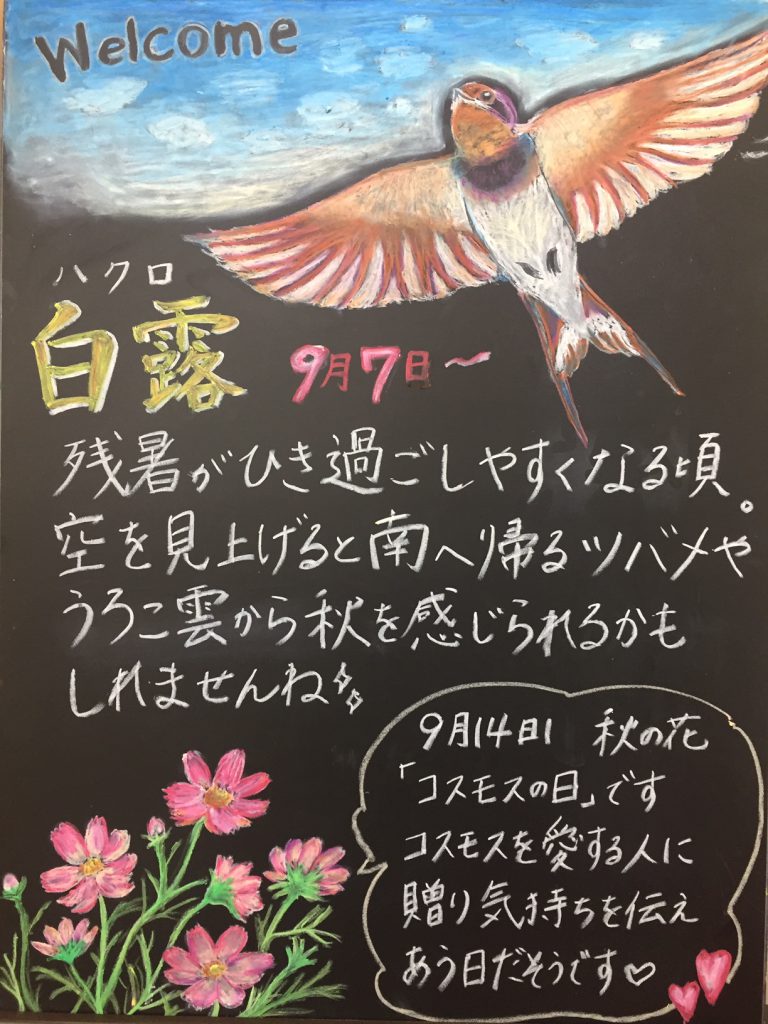 Welcome
ハクロ
白露 9月7日〜
残暑がひき過ごしやすくなる頃。
空を見上げると南へ帰るツバメや
うろこ雲から秋を感じられるかも
しれませんね
9月14日 秋の花
「コスモスの日」です
コスモスを愛する人に
贈り気持ちを伝え
あう日だそうです♡